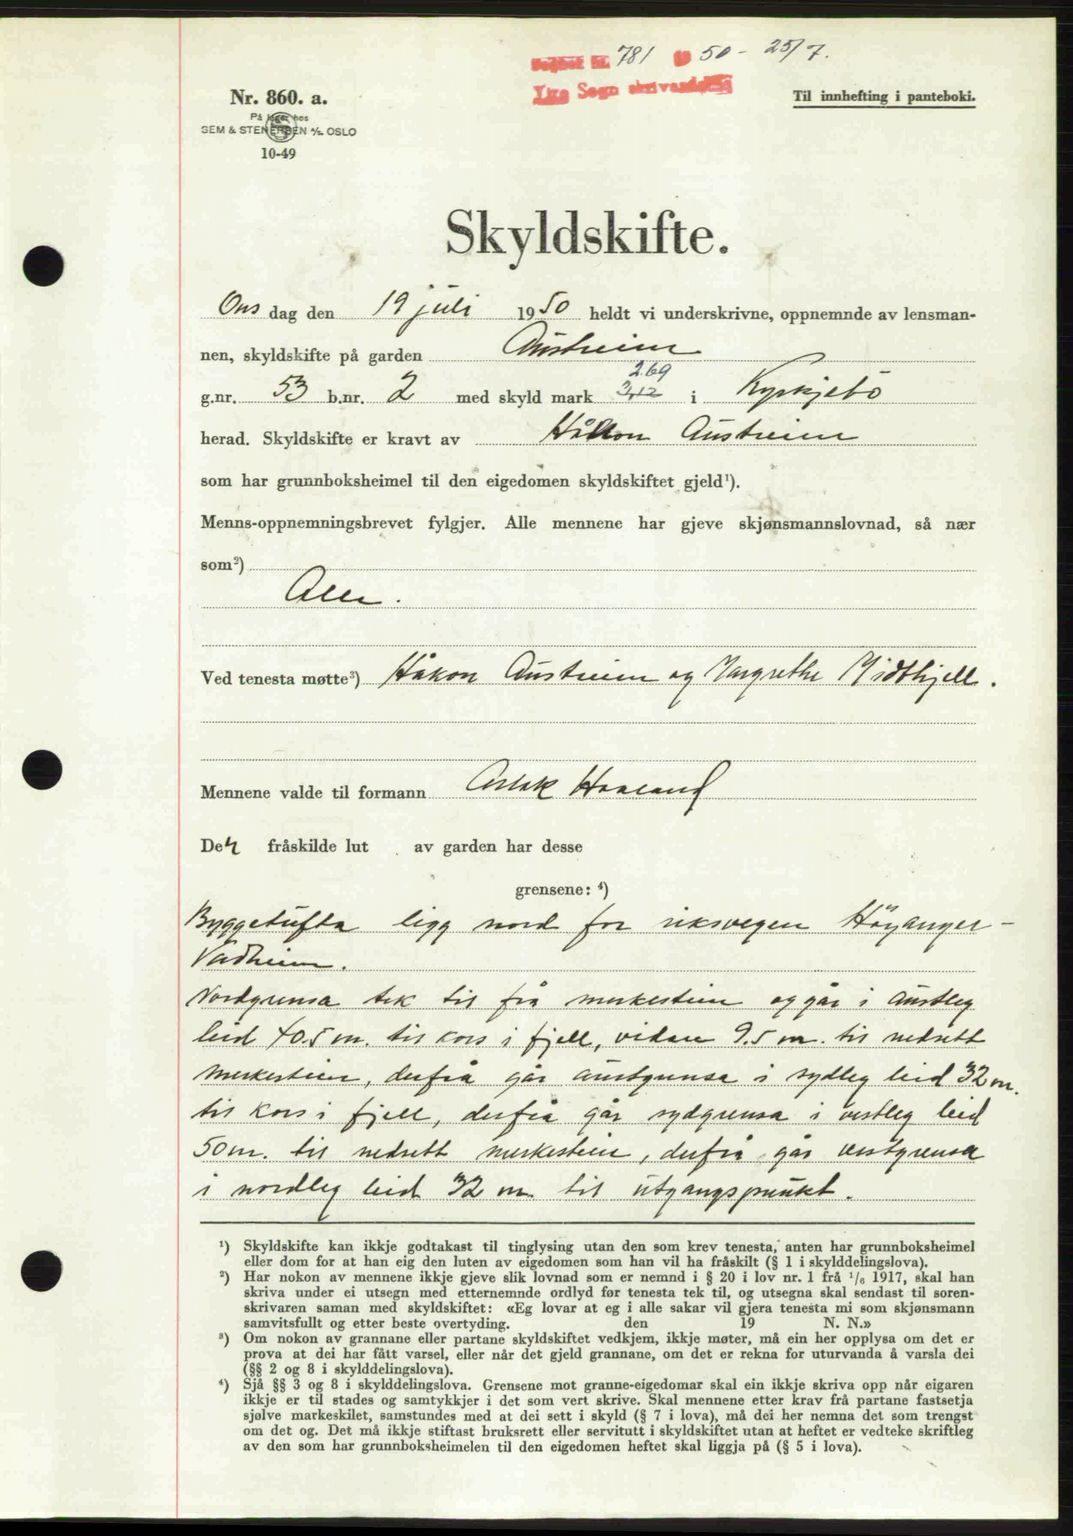 Dagbok nr. 781 19 50 - 25/7.
Ytre Sogn skrivardøme
Nr. 860. a.
Til innhefting i panteboki.
På lager hos
SEM & STENERSEN A/S OSLO
10-49
Skyldskifte.
Ons dag den 19 juli 1950 heldt vi underskrivne, oppnemnde av lensman-
nen, skyldskifte på garden Austreim
2.69
g.nr. 53 b.nr. 2 med skyld mark 3,12 i Kyrkjebö
herad. Skyldskifte er kravt av Håkon Austreim
som har grunnboksheimel til den eigedomen skyldskiftet gjeld¹).
Menns-oppnemningsbrevet fylgjer. Alle mennene har gjeve skjønsmannslovnad, så nær
som²)
Alle.
Ved tenesta møtte³) Håkon Austreim og Margrethe Midthjell.
Mennene valde til formann Aslak Haaland
Den fråskilde lut av garden har desse
grensene: ⁴)
Byggetufta ligg nord for riksvegen Höyanger -
Vadheim.
Nordgrensa tek til frå merkestein og går i austleg
leid 40.5 m. til kors i fjell, vidare 9.5 m. til nedsett
merkestein, derfrå går austgrensa i sydleg leid 32 m.
til kors i fjell, derfrå går sydgrensa i vestleg leid
50 m. til nedsett merkestein, derfrå går vestgrensa
i nordleg leid 32 m. til utgangspunkt.
¹) Skyldskifte kan ikkje godtakast til tinglysing utan den som krev tenesta, anten har grunnboksheimel
eller dom for at han eig den luten av eigedomen som han vil ha fråskilt (§ 1 i skylddelingslova).
²) Har nokon av mennene ikkje gjeve slik lovnad som er nemnd i § 20 i lov nr. 1 frå 1/6 1917, skal han
skriva under ei utsegn med etternemnde ordlyd før tenesta tek til, og utsegna skal sendast til soren-
skrivaren saman med skyldskiftet: «Eg lovar at eg i alle sakar vil gjera tenesta mi som skjønsmann
samvitsfullt og etter beste overtyding. den 19 N. N.»
³) Om nokon av grannane eller partane skyldskiftet vedkjem, ikkje møter, må ein her opplysa om det er
prova at dei har fått varsel, eller når det gjeld grannane, om det er rekna for uturvanda å varsla dei
(§§ 2 og 8 i skylddelingslova).
⁴) Sjå §§ 3 og 8 i skylddelingslova. Grensene mot granne-eigedomar skal ein ikkje skriva opp når eigaren
ikkje er til stades og samtykkjer i det som vert skrive. Skal mennene etter krav frå partane fastsetja
sjølve markeskilet, samstundes med at dei sett i skyld (§ 7 i lova), må dei her nemna det som trengst
om det og. Det må ikkje stiftast bruksrett eller servitutt i skyldskiftet utan at heftet er vedteke skriftleg
av den som har grunnboksheimelen til den eigedomen heftet skal liggja på (§ 5 i lova).